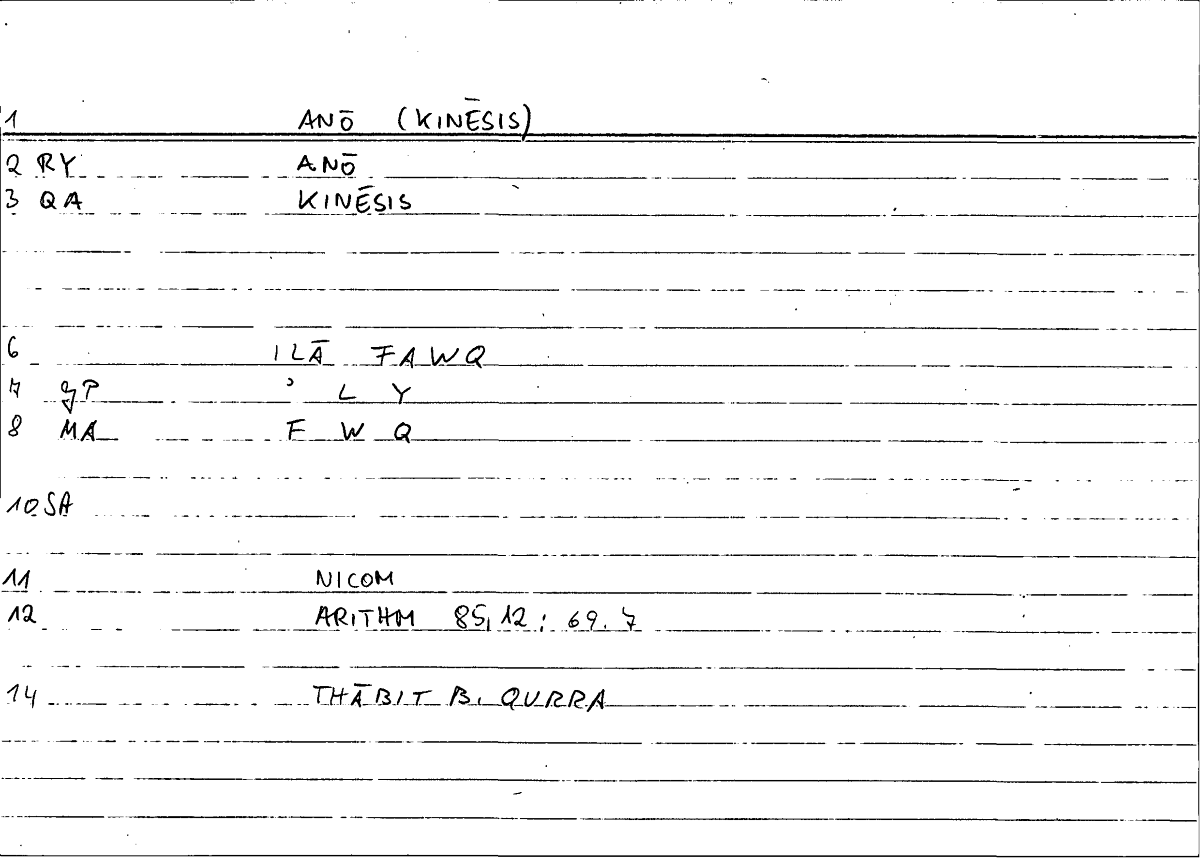 1 ANŌ (KINĒSIS)
2 RY ANŌ
3 QA KINĒSIS
6 ILĀ FAWQ
7 gP ʾ L Y
8 MA F W Q
10 SA
11 NICOM
12 ARITHM 85,12 : 69.7
14 THĀBIT B. QURRA